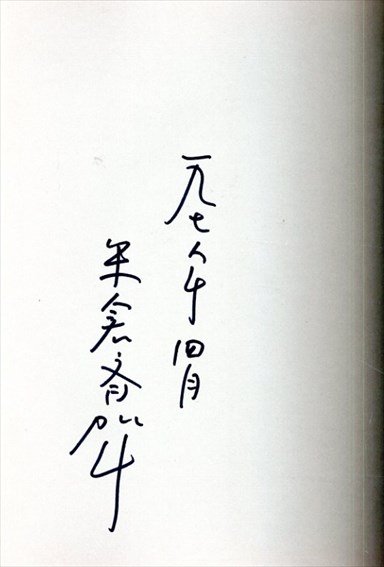 一九七八年四月
米倉斉加年